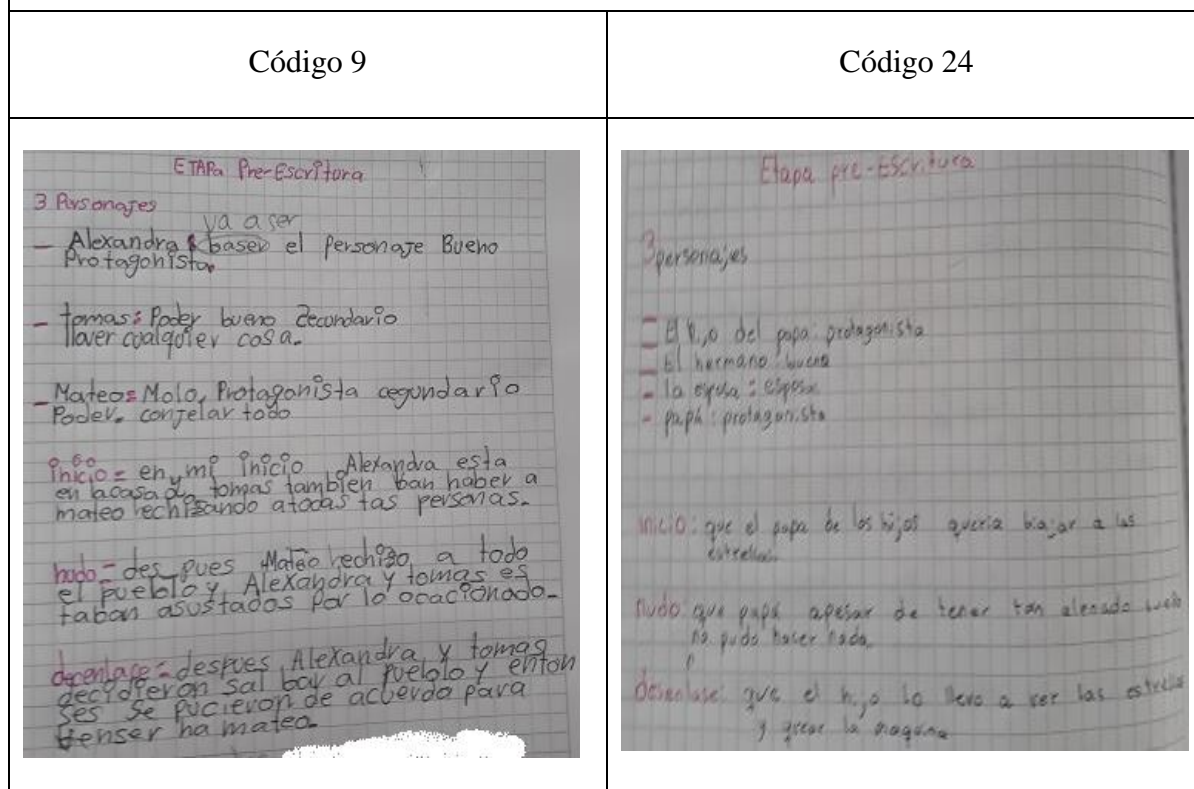 Código 9
Código 24
ETAPa Pre-Escritora
3 Personajes
va a ser
- Alexandra baser el Personaje Bueno
Protagonista.
- tomas: Poder bueno Zecundario
llover cualquier cosa.
- Mateo: Molo, Protagonista cegundario
Poder. conjelar todo
inicio = en mi inicio Alexandra esta
en lacasa tomas tambien ban haber a
mateo hechisando atodas las personas.
nodo = des pues Mateo hechiso a todo
el pueblo y Alexandra y tomas es
taban asustados por lo ocacionado-
decenlace = despues Alexandra y tomas
decidieron sal bar al pueblo y enton
ses se pucieron de acuerdo para
benser ha mateo.
Etapa pre-Escritura
3 personajes
- El hijo del papa: protagonista
- El hermano: bueno
- la esposa: esposa
- papá: protagonista
inicio: que el papa de los hijos queria biajar a las
estrellas.
nudo: que papá apesar de tener tan
no pudo hacer nada.
desenlase: que el hijo lo llevo a ver las estrellas
y